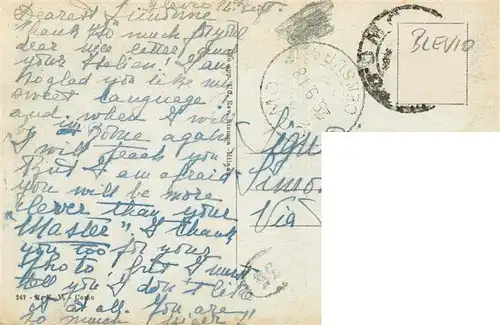 Blevio
Dearest
Thank you so much for your
dear nice letter, and
your Italien! I am
so glad you like my
sweet language!
and, when I will
be in Rome again
I will teach you.
But I am afraid
you will be more
clever than your
"Master". I thank
you too for your
photo! but I must
tell you I don't like
it at all. You are
so much nicer!
247 - Como
CENSURA
25.9.18
BLEVIO
Via